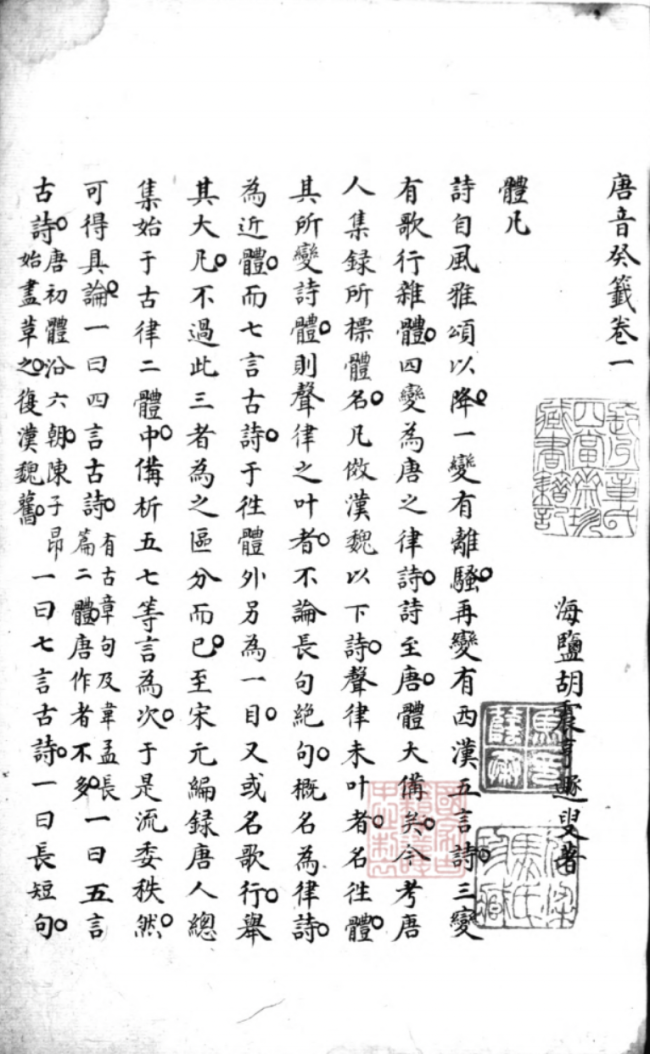 唐音癸籤卷一
海鹽胡震亨遯叟著
體凡
詩自風雅頌以降。一變有離騷。再變有西漢五言詩。三變
有歌行雜體。四變為唐之律詩。詩至唐。體大備矣。今考唐
人集録所標體名。凡倣漢魏以下詩。聲律未叶者。名徃體。
其所變詩體。則聲律之叶者。不論長句絶句。概名為律詩。
為近體。而七言古詩。于徃體外另為一目。又或名歌行。舉
其大凡。不過此三者為之區分而已。至宋元編録唐人總
集始于古律二體中。備析五七等言為次。于是流委秩然。
可得具論。一曰四言古詩。有古章句及韋孟長篇二體。唐作者不多。一曰五言
古詩。唐初體沿六朝。陳子昂始盡革之。復漢魏舊。一曰七言古詩。一曰長短句。